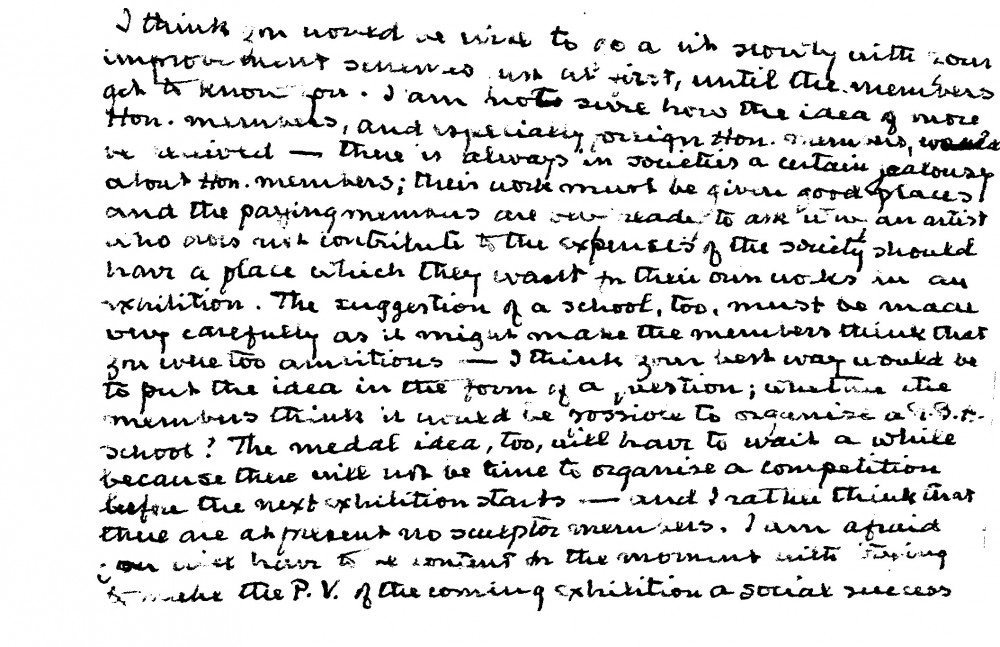 I think you would be wise to go a bit slowly with your
improvement schemes just at first, until the members
get to know you. I am not sure how the idea of more
Hon. members, and especially foreign Hon. members, would
be received — there is always in societies a certain jealousy
about Hon. members; their work must be given good places
and the paying members are ready to ask why an artist
who does not contribute to the expenses of the society should
have a place which they want for their own works in an
exhibition. The suggestion of a school, too, must be made
very carefully as it might make the members think that
you were too ambitious — I think your best way would be
to put the idea in the form of a question; whether the
members think it would be possible to organise a .B.A.
school? The medal idea, too, will have to wait a while
because there will not be time to organise a competition
before the next exhibition starts — and I rather think that
there are at present no sculptor members. I am afraid
you will have to be content for the moment with trying
to make the P.V. of the coming exhibition a social success